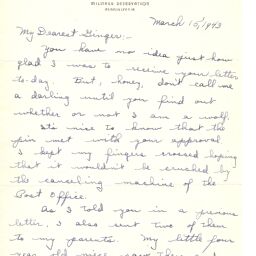 MILITARY RESERVATION
March 15, 1943
My Dearest Ginger:-
You have no idea just how
glad I was to receive your letter
to-day. But, honey, don't call me
a darling until you find out
whether or not I am a wolf.
It's nice to know that the
pin met with your approval
I kept my fingers crossed hoping
that it wouldn't be crushed by
the canceling machine of the
Post Office.
As I told you in a previous
letter, I also sent two of them
to my parents. My little four
year old niece saw them